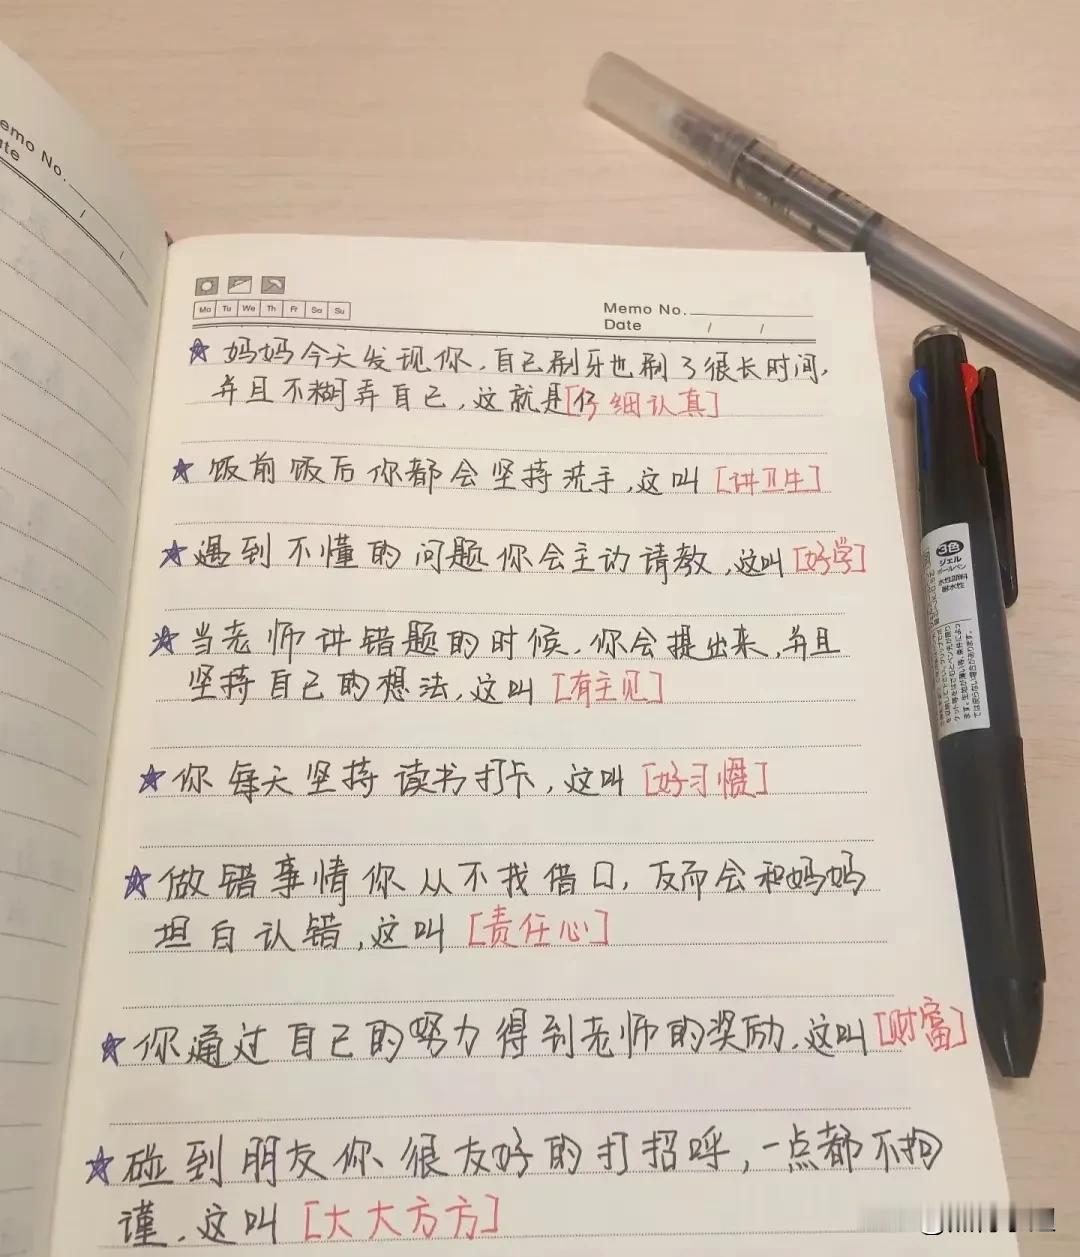 emo No.
te
Mo Tu We Th Fr Sa Su
Memo No.
Date / /
☆ 妈妈今天发现你,自己刷牙也刷了很长时间,
并且不糊弄自己,这就是[仔细认真]
☆ 饭前饭后你都会坚持洗手,这叫[讲卫生]
☆ 遇到不懂的问题你会主动请教,这叫[好学]
☆ 当老师讲错题的时候,你会提出来,并且
坚持自己的想法,这叫[有主见]
☆ 你每天坚持读书打卡,这叫[好习惯]
☆ 做错事情你从不找借口,反而会和妈妈
坦白认错,这叫[责任心]
☆ 你通过自己的努力得到老师的奖励,这叫[财富]
☆ 碰到朋友你很友好的打招呼,一点都不拘
谨,这叫[大大方方]
3色
ジェル
ボールペン
水性顔料
耐水性